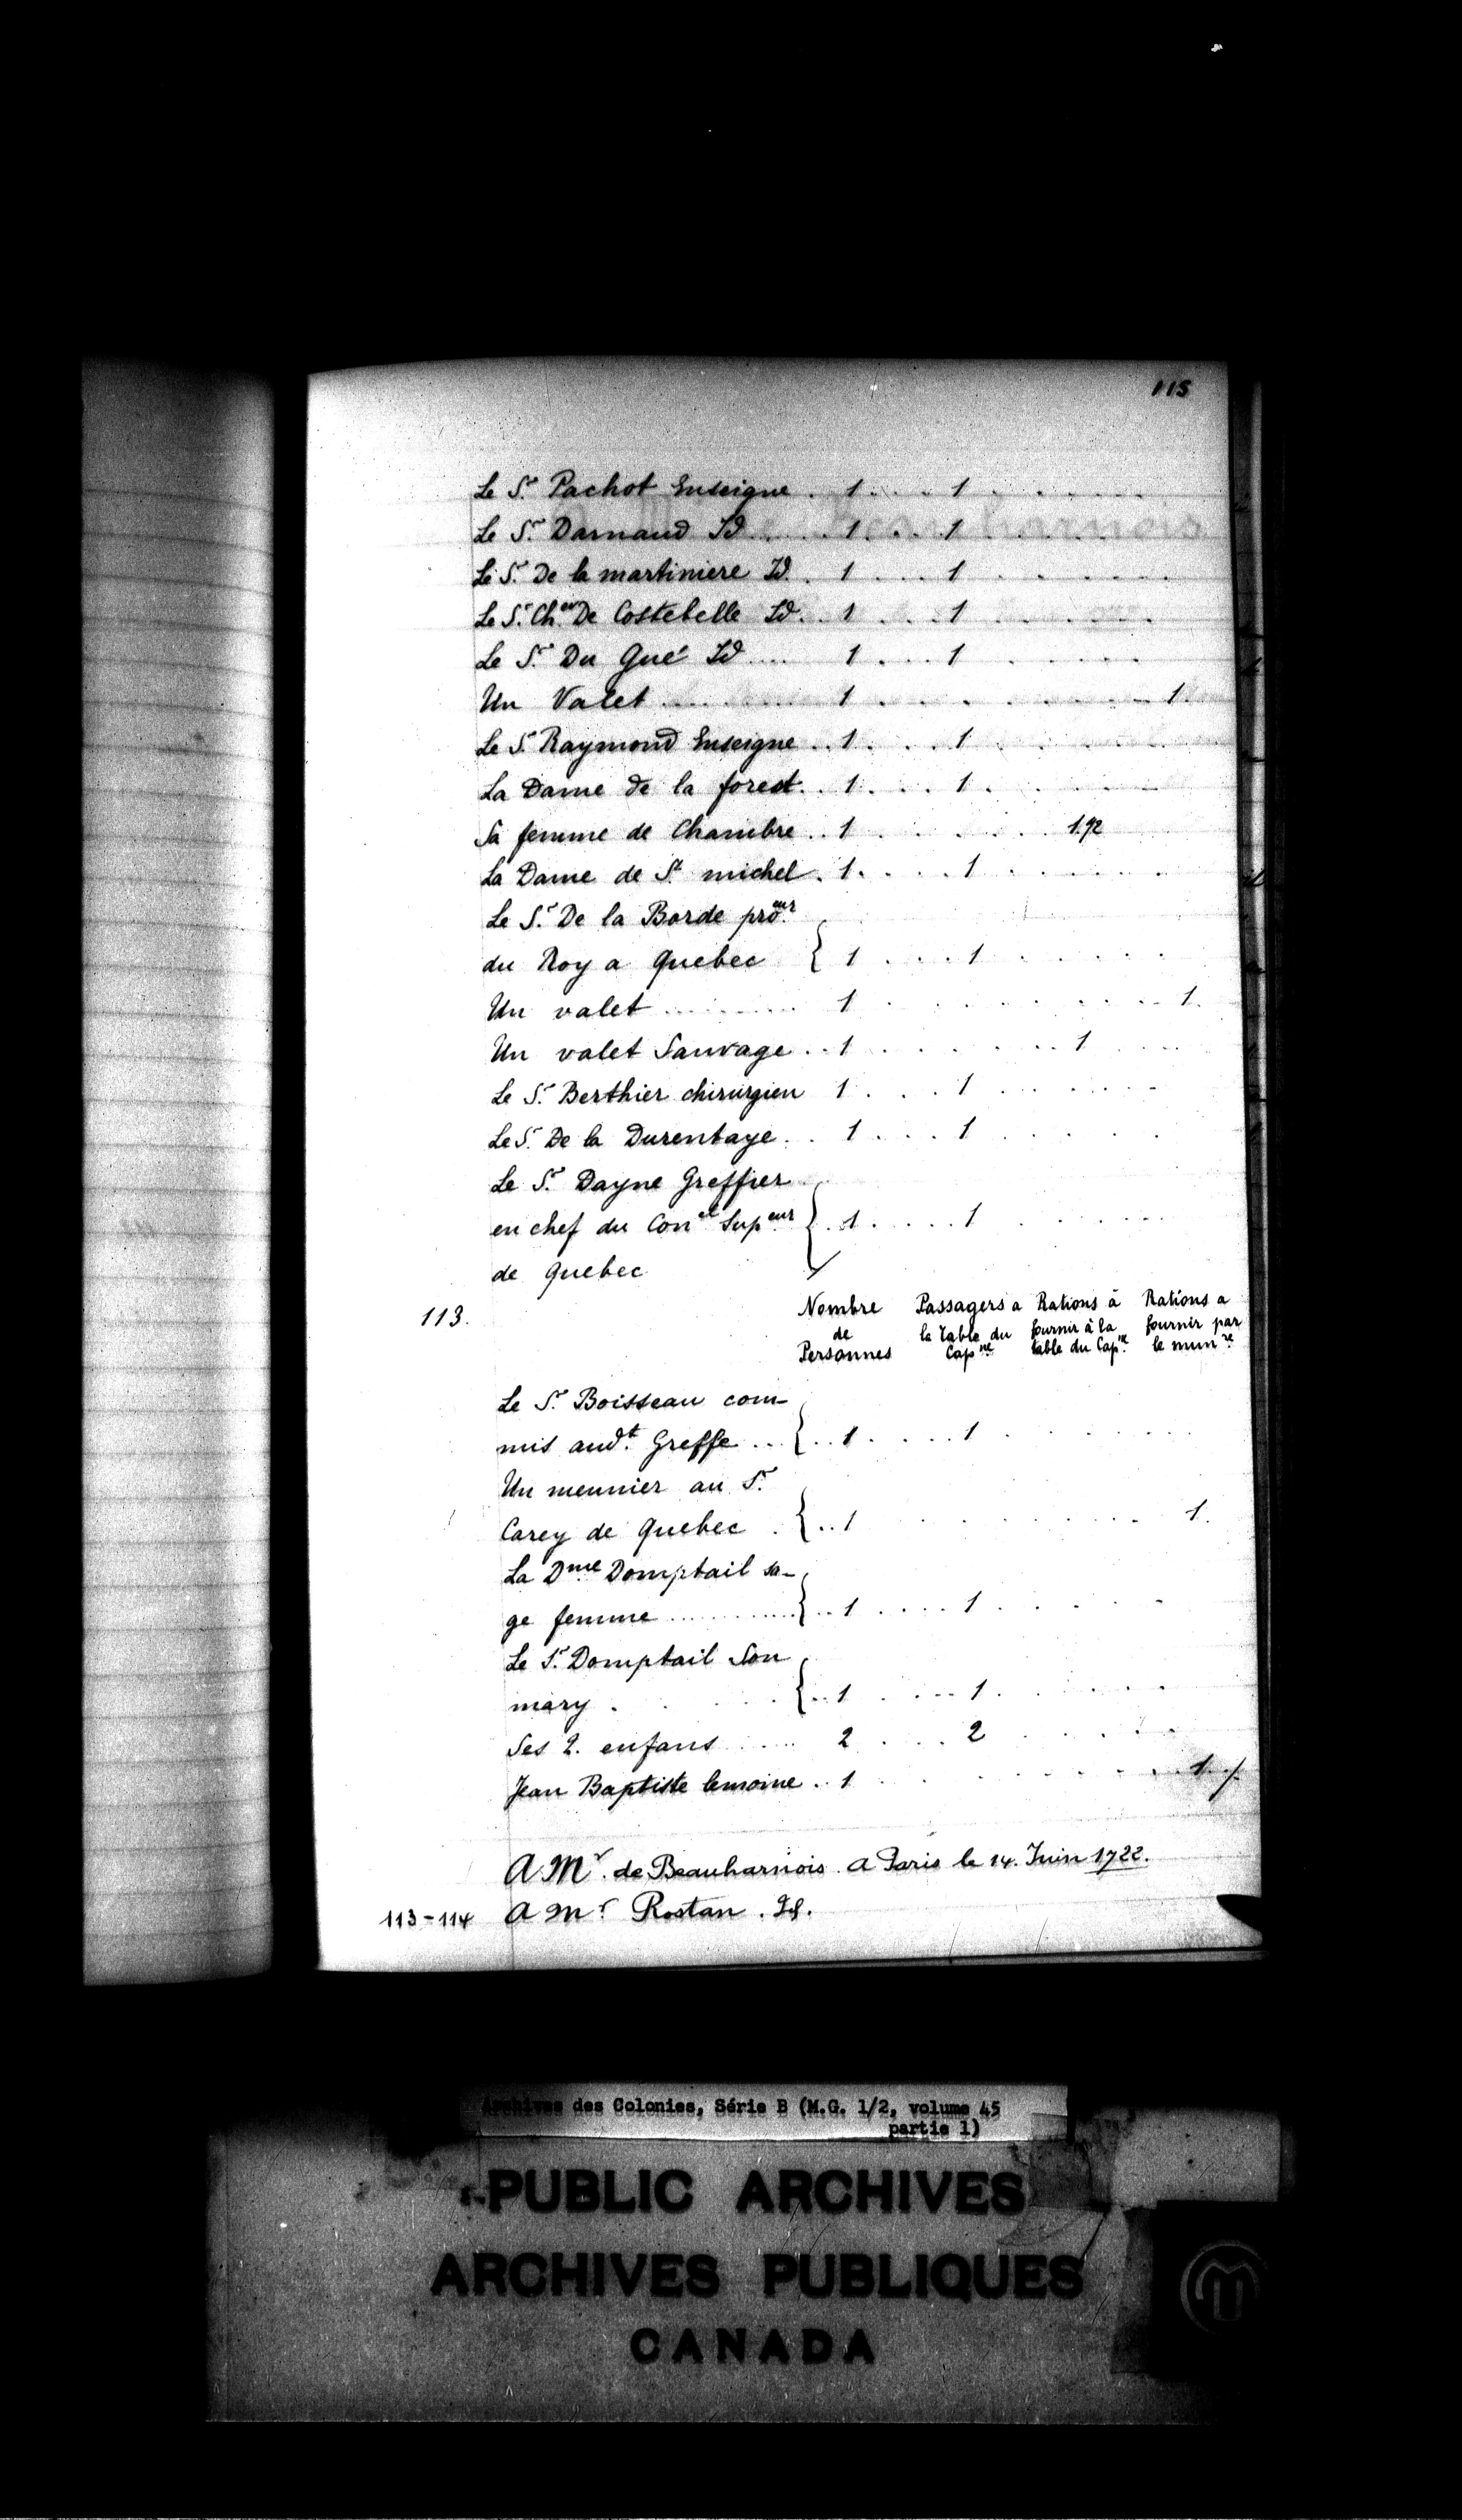 115
Le Sr Pachot Enseigne . 1 . . . . 1 . . . . . .
Le Sr Darnaud Id . . . . 1 . . . 1 . . . . .
Le Sr De la martiniere Id. . 1 . . . 1 . . . . .
Le Sr Cher De Costebelle Id. . 1 . . . 1 . . . . .
Le Sr Du Gué Id .... 1 . . . 1 . . . .
Un Valet . . . . . . 1 . . . . . . . . 1.
Le Sr Raymond Enseigne . . 1 . . . . 1 . . . .
La Dame de la forest. . 1 . . . 1 . . . . .
Sa femme de Chambre . . 1 . . . . . 1.92
La Dame de St michel . 1. . . . 1 . . . . .
Le Sr De la Borde proeur
du Roy a Quebec { 1 . . . . 1 . . . . . .
Un valet .......... 1 . . . . . . . . . 1.
Un valet Sauvage . . 1 . . . . . . 1 . . .
Le Sr Berthier chirurgien 1 . . . . 1 . . . . . .
Le Sr De la Durentaye. . . 1 . . . . 1 . . . . .
Le Sr Dayne Greffier
en chef du Conel Supeur { . 1 . . . . . 1 . . . . . .
de Quebec
113. Nombre Passagers a Rations à Rations a
de la Table du fournir à la fournir par
Personnes Capne table du Capne le munre
Le Sr Boisseau com-
mis audt Greffe ... { . . 1 . . . . . 1 . . . . . .
Un meunier au Sr
Carey de Quebec . { . . 1 . . . . . . . . . 1.
La Dme Domptail sa-
ge femme ............ } . . 1 . . . . 1 . . . . .
Le Sr Domptail Son
mary . . . . { . . 1 . . . . 1 . . . . .
Ses 2. enfans ..... 2 . . . . 2 . . . . .
Jean Baptiste lemoine . . 1 . . . . . . . . 1 ./.
A Mr de Beauharnois. A Paris le 14. Juin 1722.
113-114 A Mr Rostan . Id.
Archives des Colonies, Série B (M.G. 1/2, volume 45
partie 1)
PUBLIC ARCHIVES
ARCHIVES PUBLIQUES
CANADA